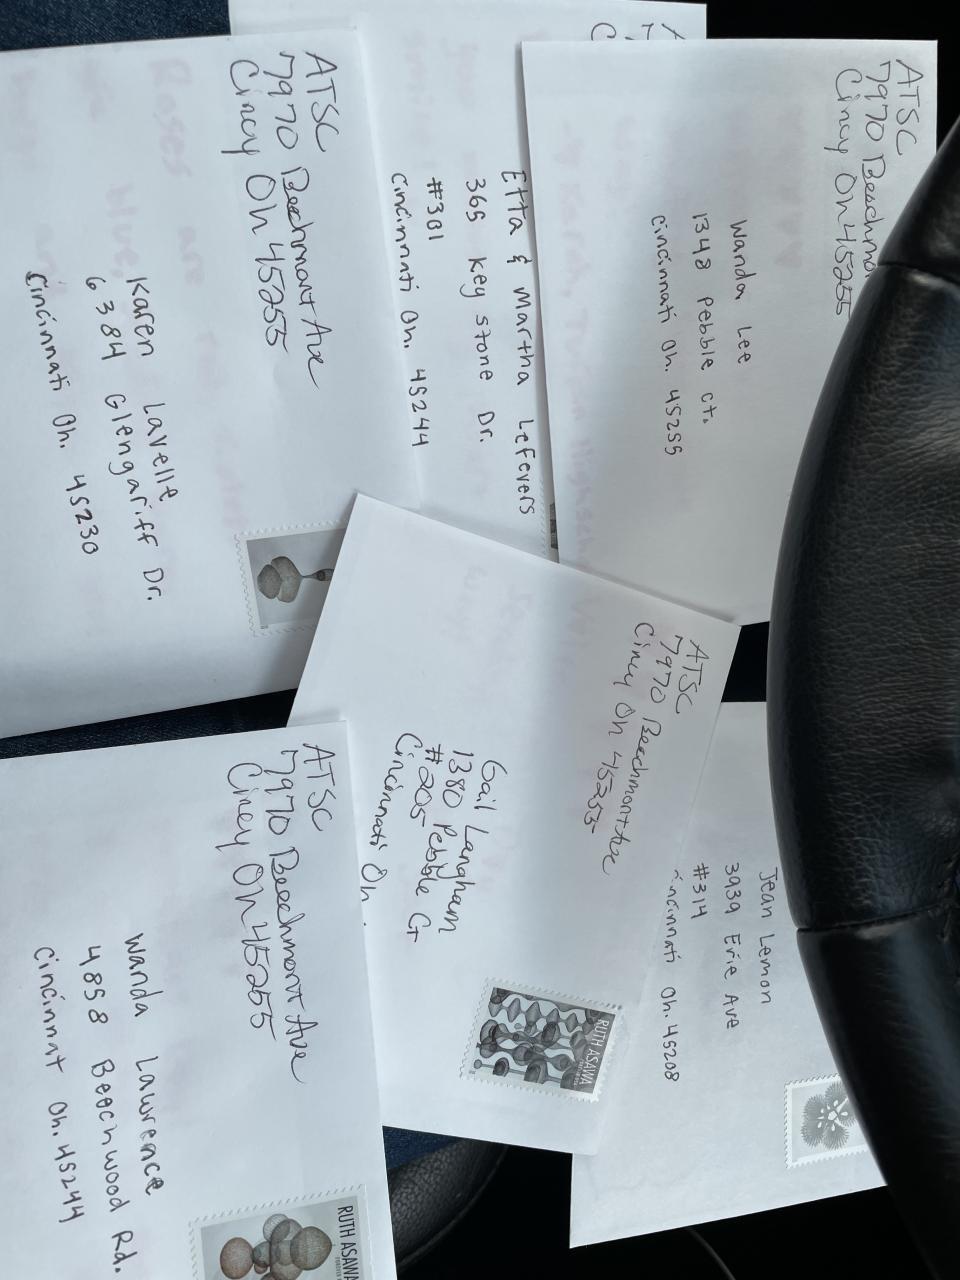 ATSC
7970 Beechmont Ave
Cincy Oh 45255
Karen Lavelle
6384 Glengariff Dr.
Cincinnati Oh. 45230
Roses are
Blue,
Etta & Martha Lefevers
365 Key stone Dr.
#301
Cincinnati Oh. 45244
ATSC
7970 Beechmo
Cincy Oh 45255
Wanda Lee
1348 Pebble Ct.
Cincinnati Oh. 45255
ATSC
7970 Beechmont Ave
Cincy Oh 45255
Gail Langham
1380 Pebble Ct
#205
Cincinnati Oh.
RUTH ASAWA
Jean Lemon
3939 Erie Ave
#314
incinnati Oh. 45208
ATSC
7970 Beechmont Ave
Cincy Oh 45255
Wanda Lawrence
4858 Beechwood Rd.
Cincinnat Oh. 45244
RUTH ASAWA